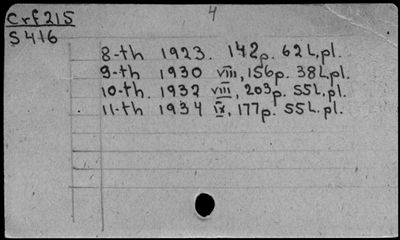 4
Crf215
S416
8-th 1923. 142p. 62 l, pl.
9-th 1930 viii, 156p. 38 l, pl.
10-th. 1932 viii, 203p. 55 l. pl.
11-th 1934 ix, 177p. 55 l. pl.